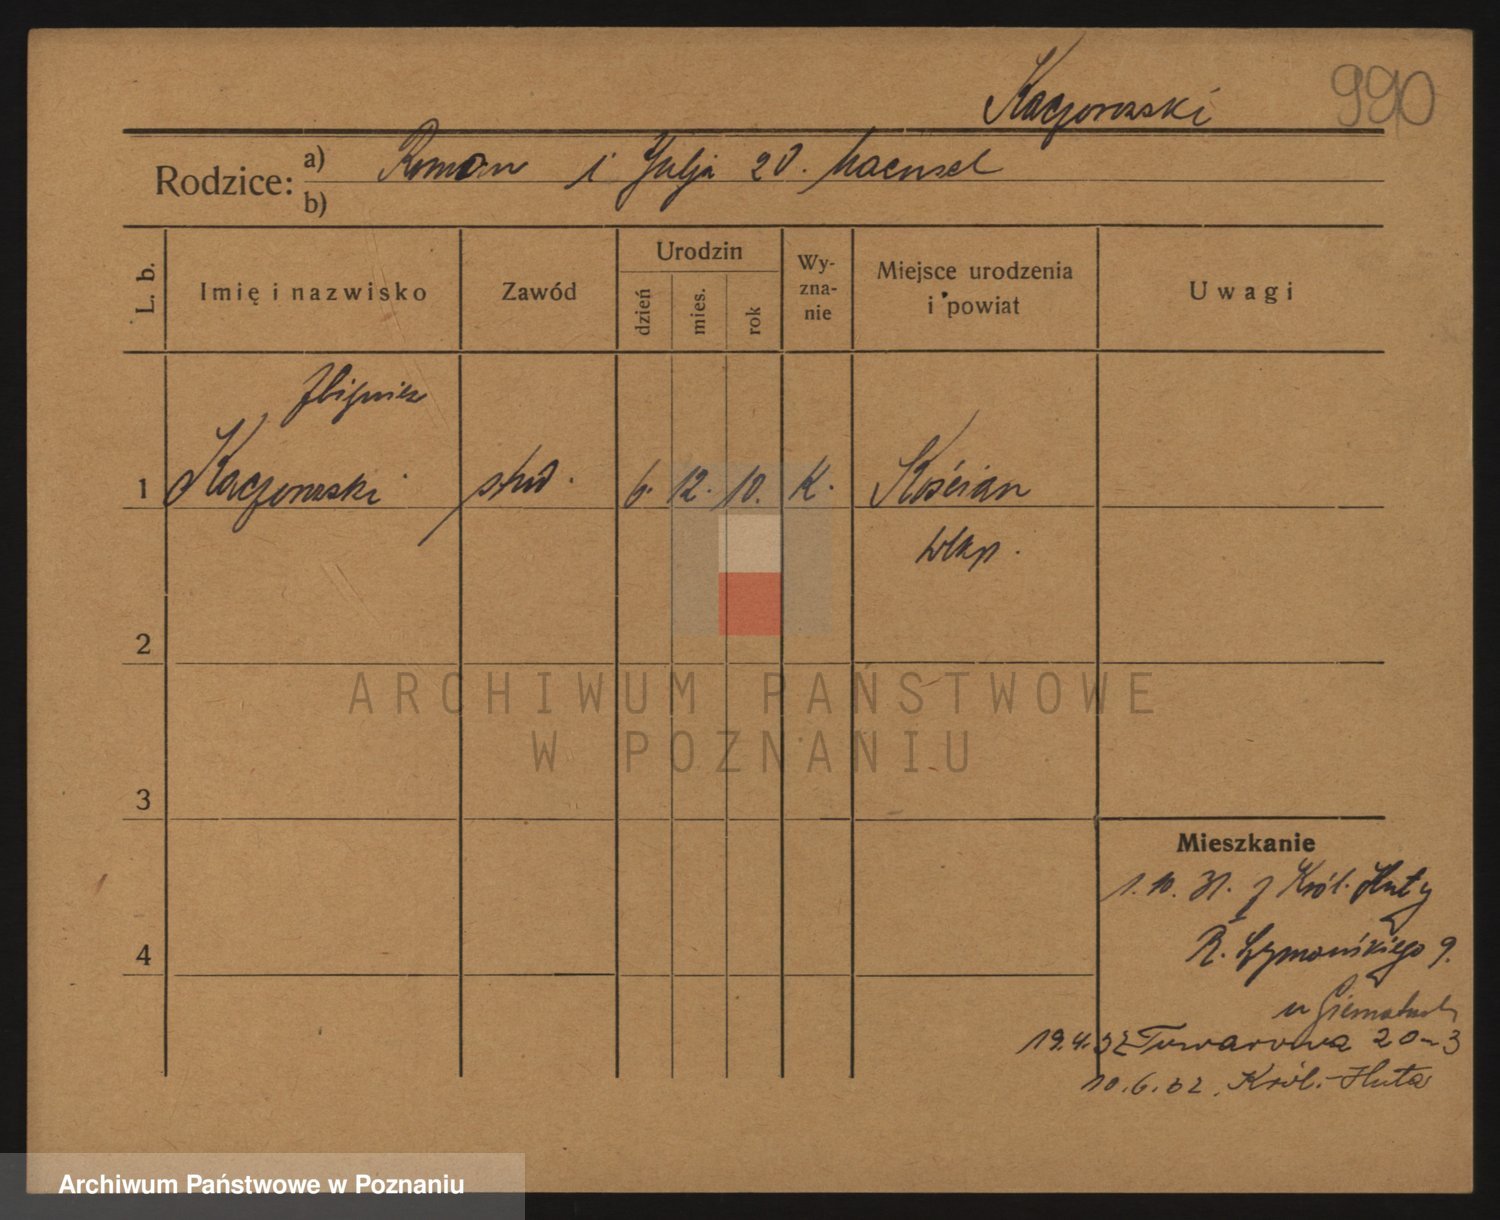 Kaczorowski 990
Rodzice: a) Roman i Julja zd. Haensel
b)
L. b.
Imię i nazwisko
Zawód
Urodzin
dzień
mies.
rok
Wy-
zna-
nie
Miejsce urodzenia
i powiat
Uwagi
Zbigniew
1 Kaczorowski stud. 6. 12. 10. K. Kościan
Wlkp.
2
3
4
Mieszkanie
1. 10. 31. z Król. Huty
R. Szymańskiego 9.
u
19.4.32 Towarowa 20-3
10.6.32. Król.-Huta
ARCHIWUM PAŃSTWOWE
W POZNANIU
Archiwum Państwowe w Poznaniu